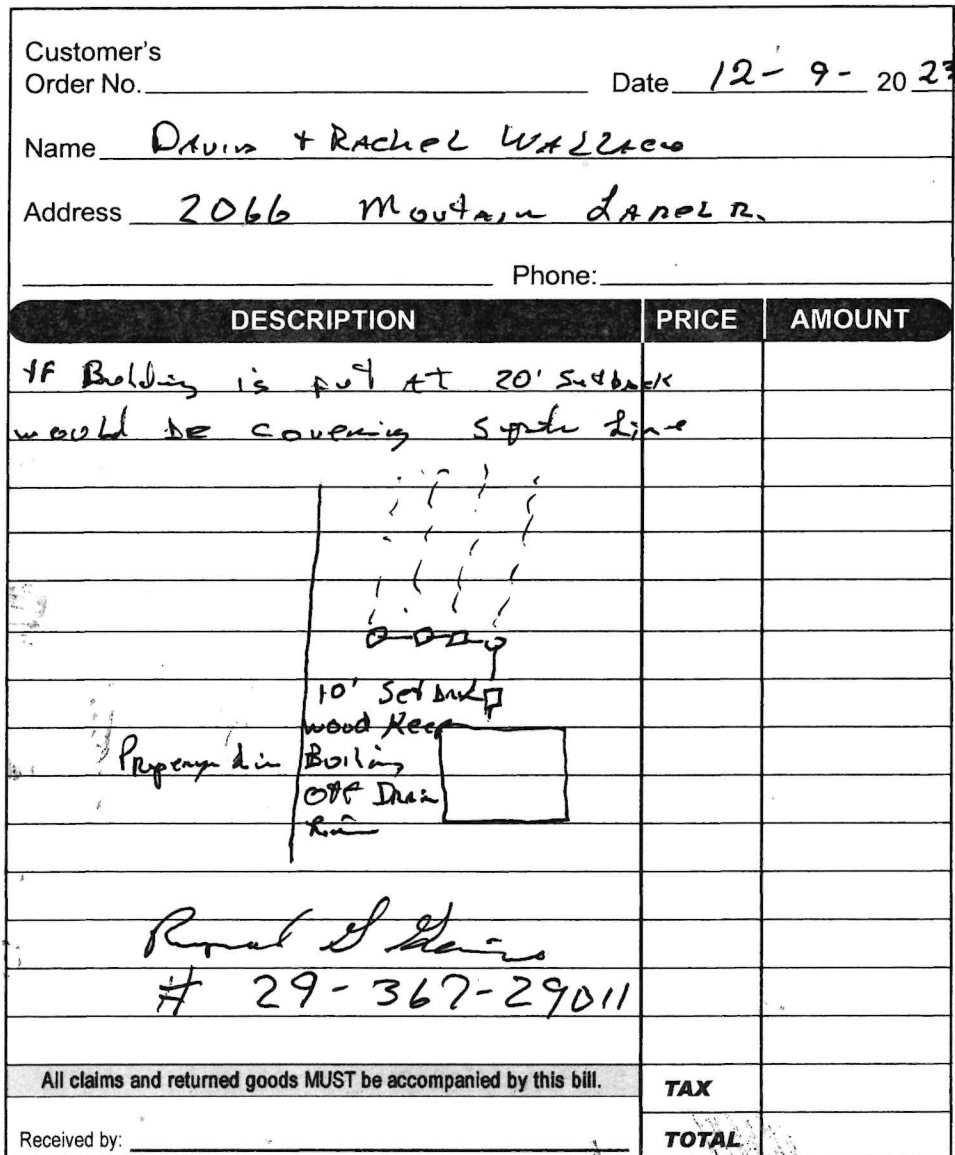 Customer's
Order No. Date 12 - 9 - 20 23
Name David + Rachel Wallace
Address 2066 Moutain Larel R.
Phone:
DESCRIPTION PRICE AMOUNT
If Building is put At 20' Setback
would be covering Septic Line
10' Setback
wood Keep
Property Lin Boiling
Off Drain
Lin
# 29-367-29011
All claims and returned goods MUST be accompanied by this bill.
TAX
Received by: TOTAL